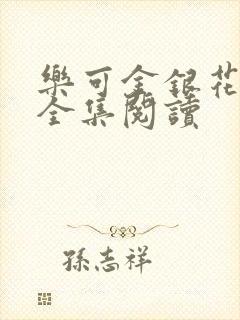 樂可金銀花
全集閱讀
孫志祥